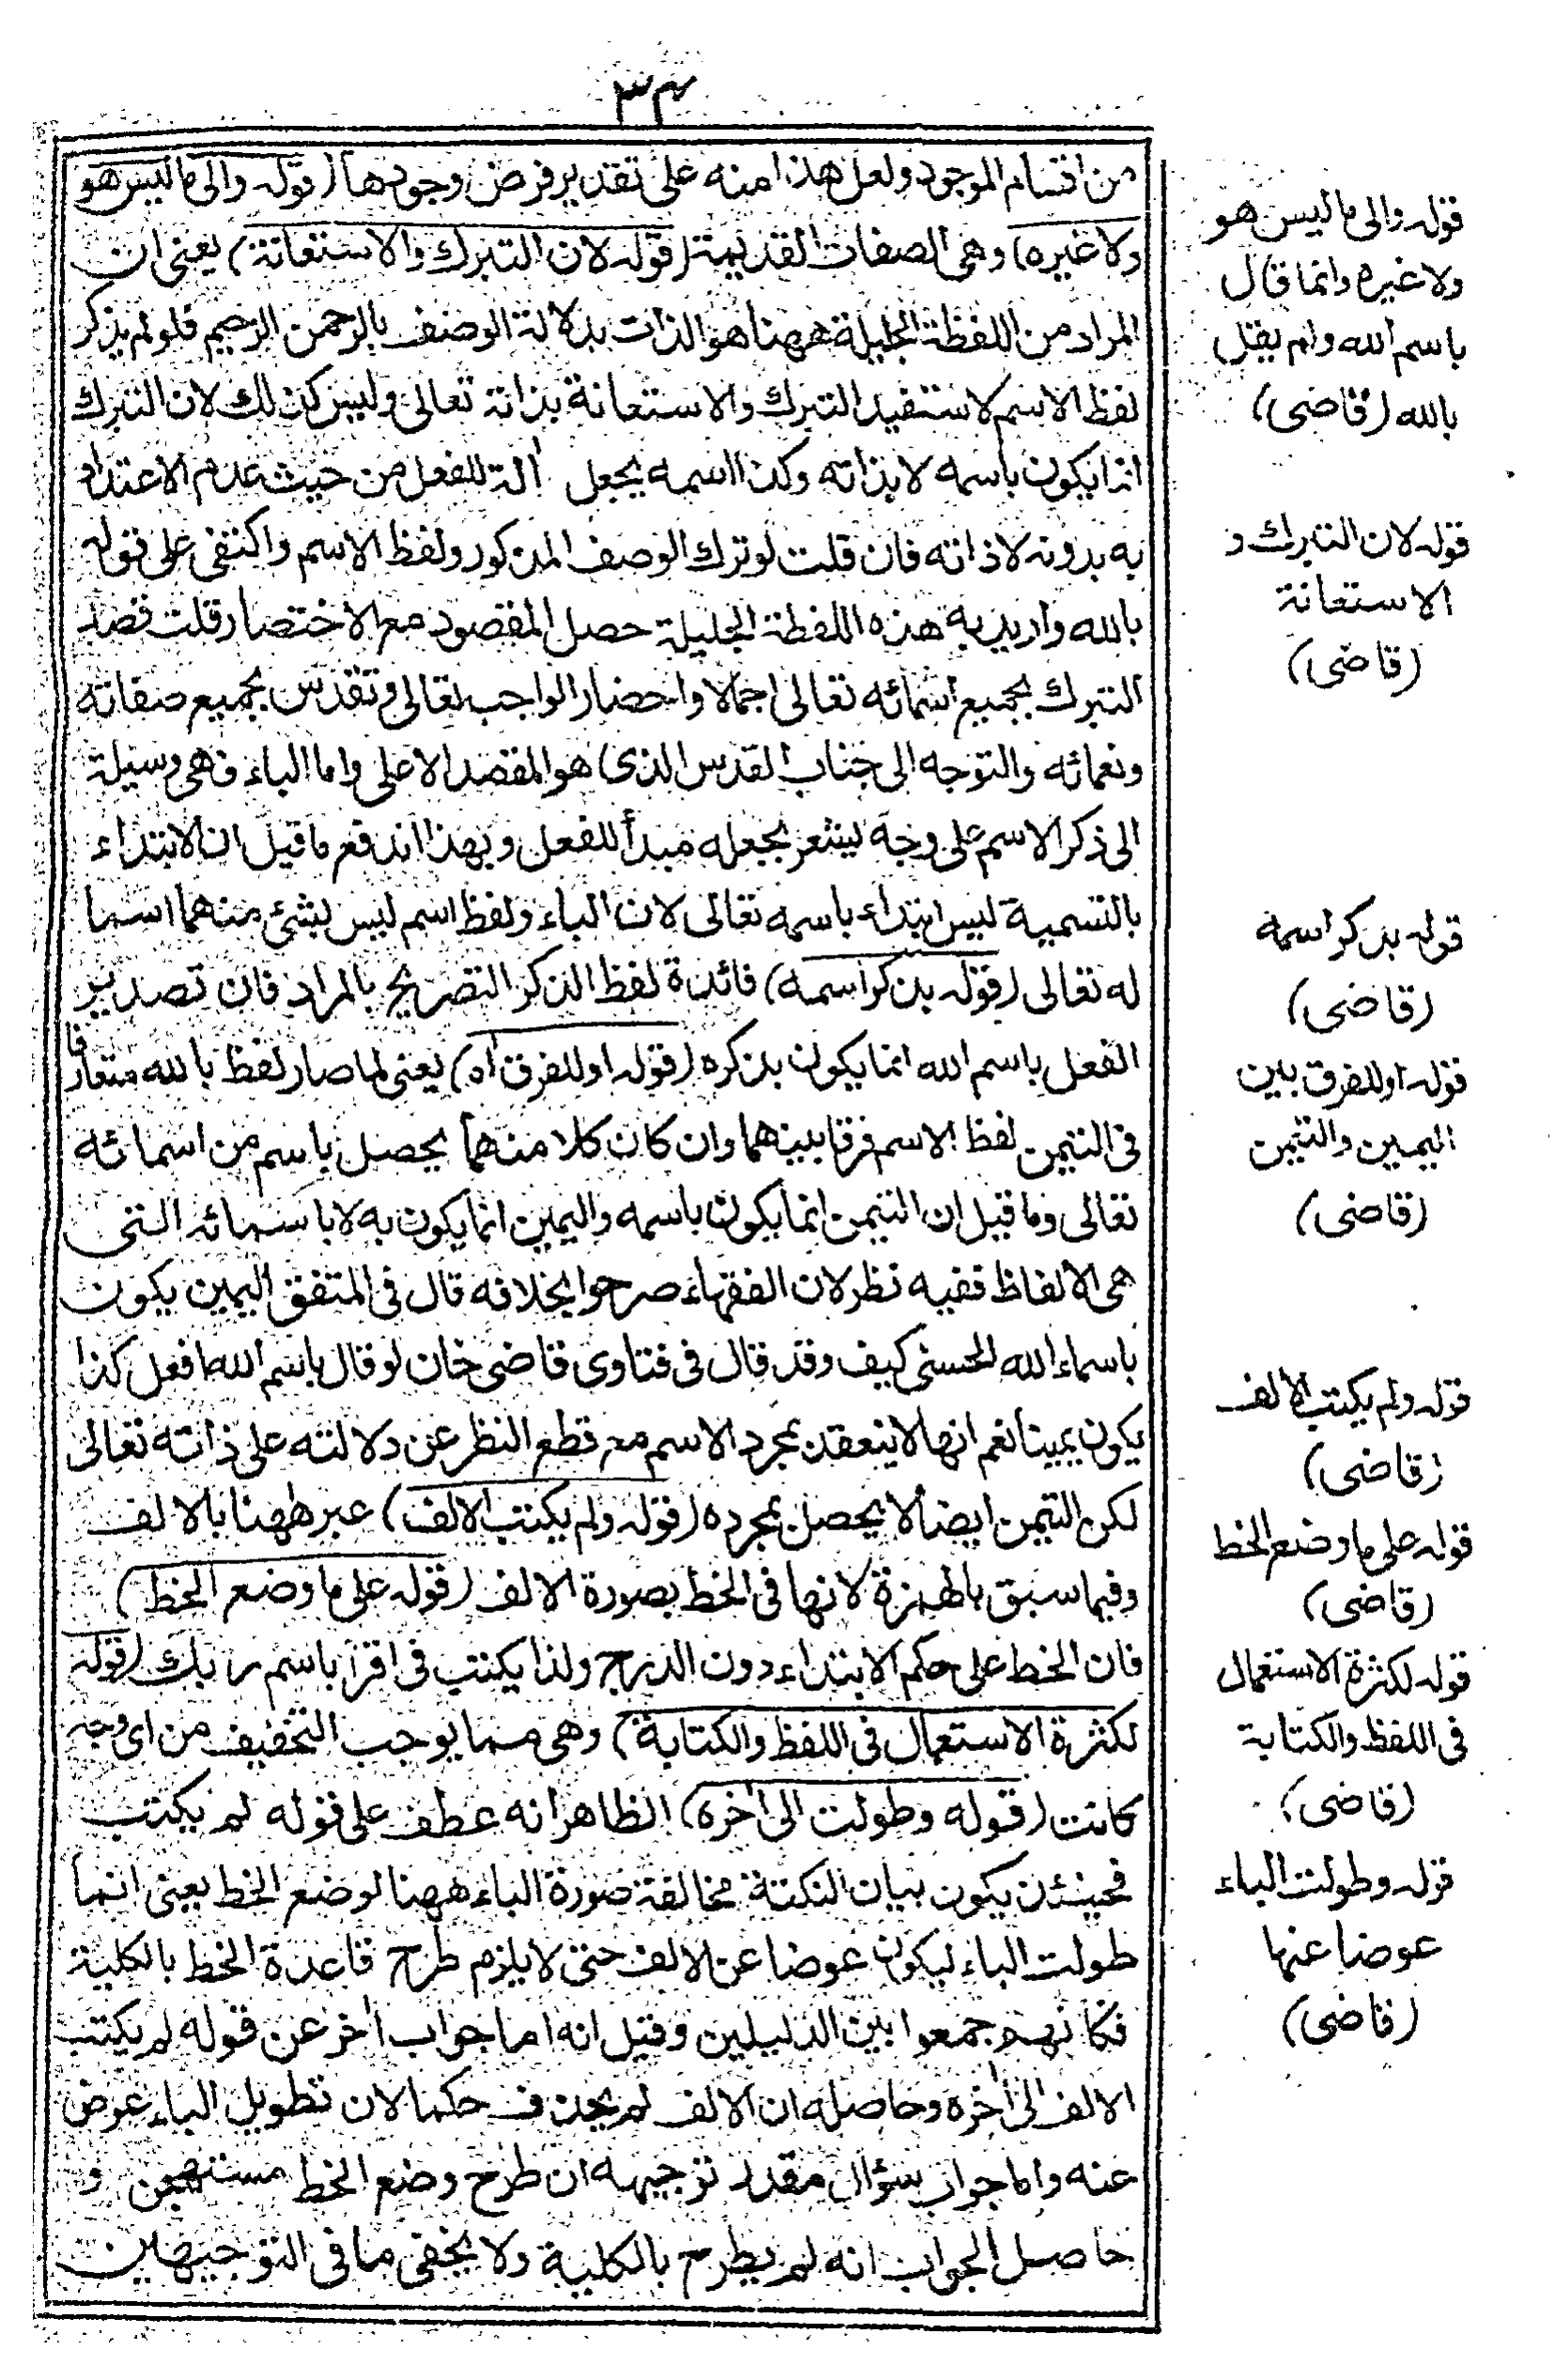 ٣٤
من اقسام الموجود ولعل هذا منه على تقدير فرض وجودها (قوله والى ما ليس هو
ولا غيره) وهى الصفات القديمة (قوله لان التبرك والاستعانة) يعنى ان
المراد من اللفظة الجليلة ههنا هو الذات بدلالة الوصف بالرحمن الرحيم فلو لم يذكر
لفظ الاسم لاستفيد التبرك والاستعانة بذاته تعالى وليس كذلك لان التبرك
انما يكون باسمه لا بذاته وكذا اسمه يجعل آلة للفعل من حيث عدم الاعتداد
به بدونه لا ذاته فان قلت لو ترك الوصف المذكور ولفظ الاسم واكتفى على قوله
بالله واريد به هذه اللفظة الجليلة حصل المقصود مع الاختصار قلت قصد
التبرك بجميع اسمائه تعالى اجمالا واحضار الواجب تعالى وتقدس بجميع صفاته
ونعمائه والتوجه الى جناب القدس الذى هو المقصد الاعلى واما الباء فهى وسيلة
الى ذكر الاسم على وجه يشعر بجعله مبدأ للفعل وبهذا اندفع ما قيل ان الابتداء
بالتسمية ليس ابتداء باسمه تعالى لان الباء ولفظ اسم ليس بشئ منهما اسما
له تعالى (قوله بذكر اسمه) فائدة لفظ الذكر التصريح بالمراد فان تصدير
الفعل باسم الله انما يكون بذكره (قوله او للفرق اه) يعنى لما صار لفظ بالله متعارفا
فى التيمن لفظ الاسم فرقا بينهما وان كان كلا منهما يحصل باسم من اسمائه
تعالى وما قيل ان التيمن انما يكون باسمه واليمين انما يكون به لا باسمائه التى
هى الالفاظ ففيه نظر لان الفقهاء صرحوا بخلافه قال فى المتفق اليمين يكون
باسماء الله الحسنى كيف وقد قال فى فتاوى قاضى خان لو قال باسم الله افعل كذا
يكون يمينا نعم انها لا ينعقد بمجرد الاسم مع قطع النظر عن دلالته على ذاته تعالى
لكن التيمن ايضا لا يحصل بمجرده (قوله ولم يكتب الالف) عبر ههنا بالالف
وفيما سبق بالهمزة لانها فى الخط بصورة الالف (قوله على ما وضع الخط)
فان الخط على حكم الابتداء دون الدرج ولذا يكتب فى اقرأ باسم ربك (قوله
لكثرة الاستعمال فى اللفظ والكتابة) وهى مما يوجب التخفيف من اى وجه
كانت (قوله وطولت الى آخره) الظاهر انه عطف على قوله لم يكتب
فحينئذ يكون بيان النكتة مخالفة صورة الباء ههنا لوضع الخط يعنى انما
طولت الباء ليكون عوضا عن الالف حتى لا يلزم طرح قاعدة الخط بالكلية
فكانهم جمعوا بين الدليلين وقيل انه اما جواب آخر عن قوله لم يكتب
الالف الى آخره وحاصله ان الالف لم يحذف حكما لان تطويل الباء عوض
عنه واما جواب سؤال مقدر توجيهه ان طرح وضع الخط مستهجن و
حاصل الجواب انه لم يطرح بالكلية ولا يخفى ما فى التوجيهين
قوله والى ما ليس هو
ولا غيره وانما قال
باسم الله ولم يقل
بالله (قاضى)
قوله لان التبرك و
الاستعانة
(قاضى)
قوله بذكر اسمه
(قاضى)
قوله او للفرق بين
اليمين والتيمن
(قاضى)
قوله ولم يكتب الالف
(قاضى)
قوله على ما وضع الخط
(قاضى)
قوله لكثرة الاستعمال
فى اللفظ والكتابة
(قاضى)
قوله وطولت الباء
عوضا عنها
(قاضى)